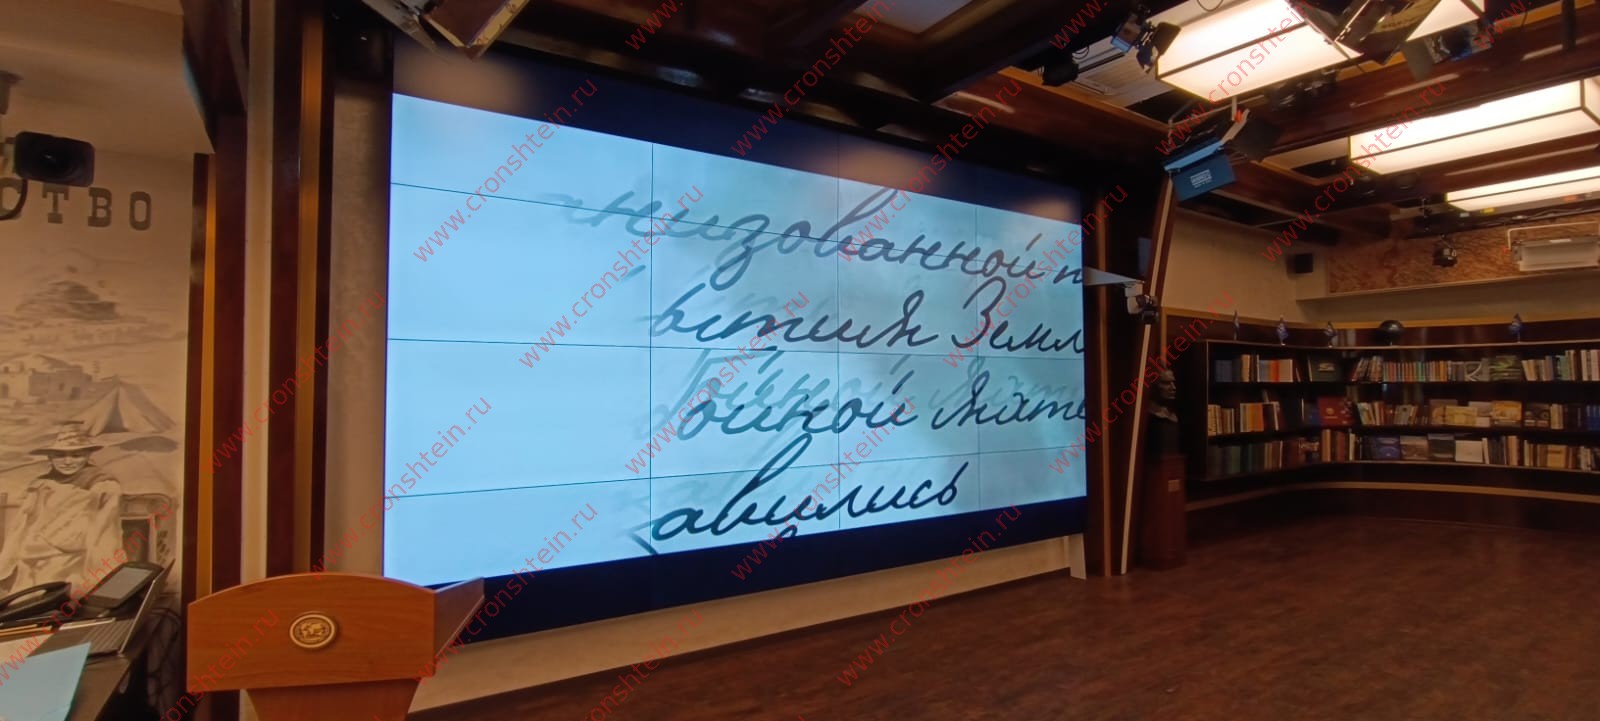 СТВО
низованной п
ытия Земл
ойной
авились
www.cronshtein.ru